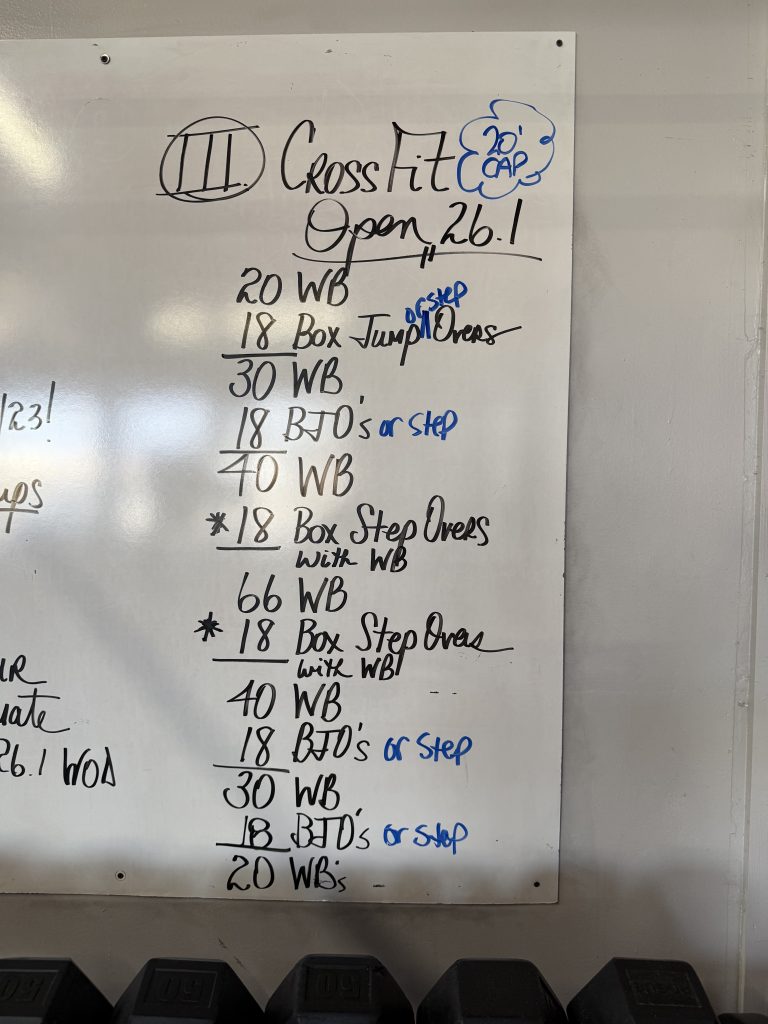 III. CrossFit 20' CAP
Open 26.1
20 WB
18 Box Jump or step Overs
30 WB
18 BJO's or step
40 WB
*18 Box Step Overs
with WB
66 WB
*18 Box Step Overs
with WB
40 WB
18 BJO's or step
30 WB
18 BJO's or step
20 WB's
/23!
ups
uate
26.1 WOD
50
50